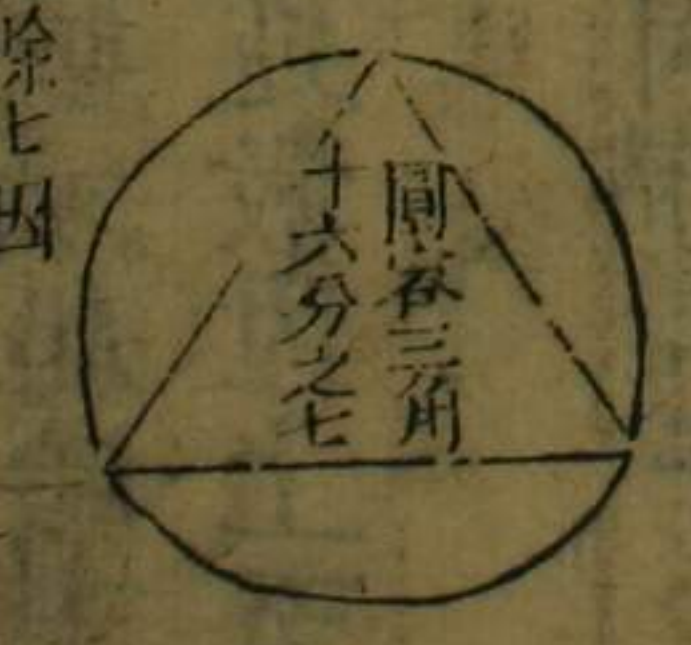 圓容三角
十六分之七
除七因